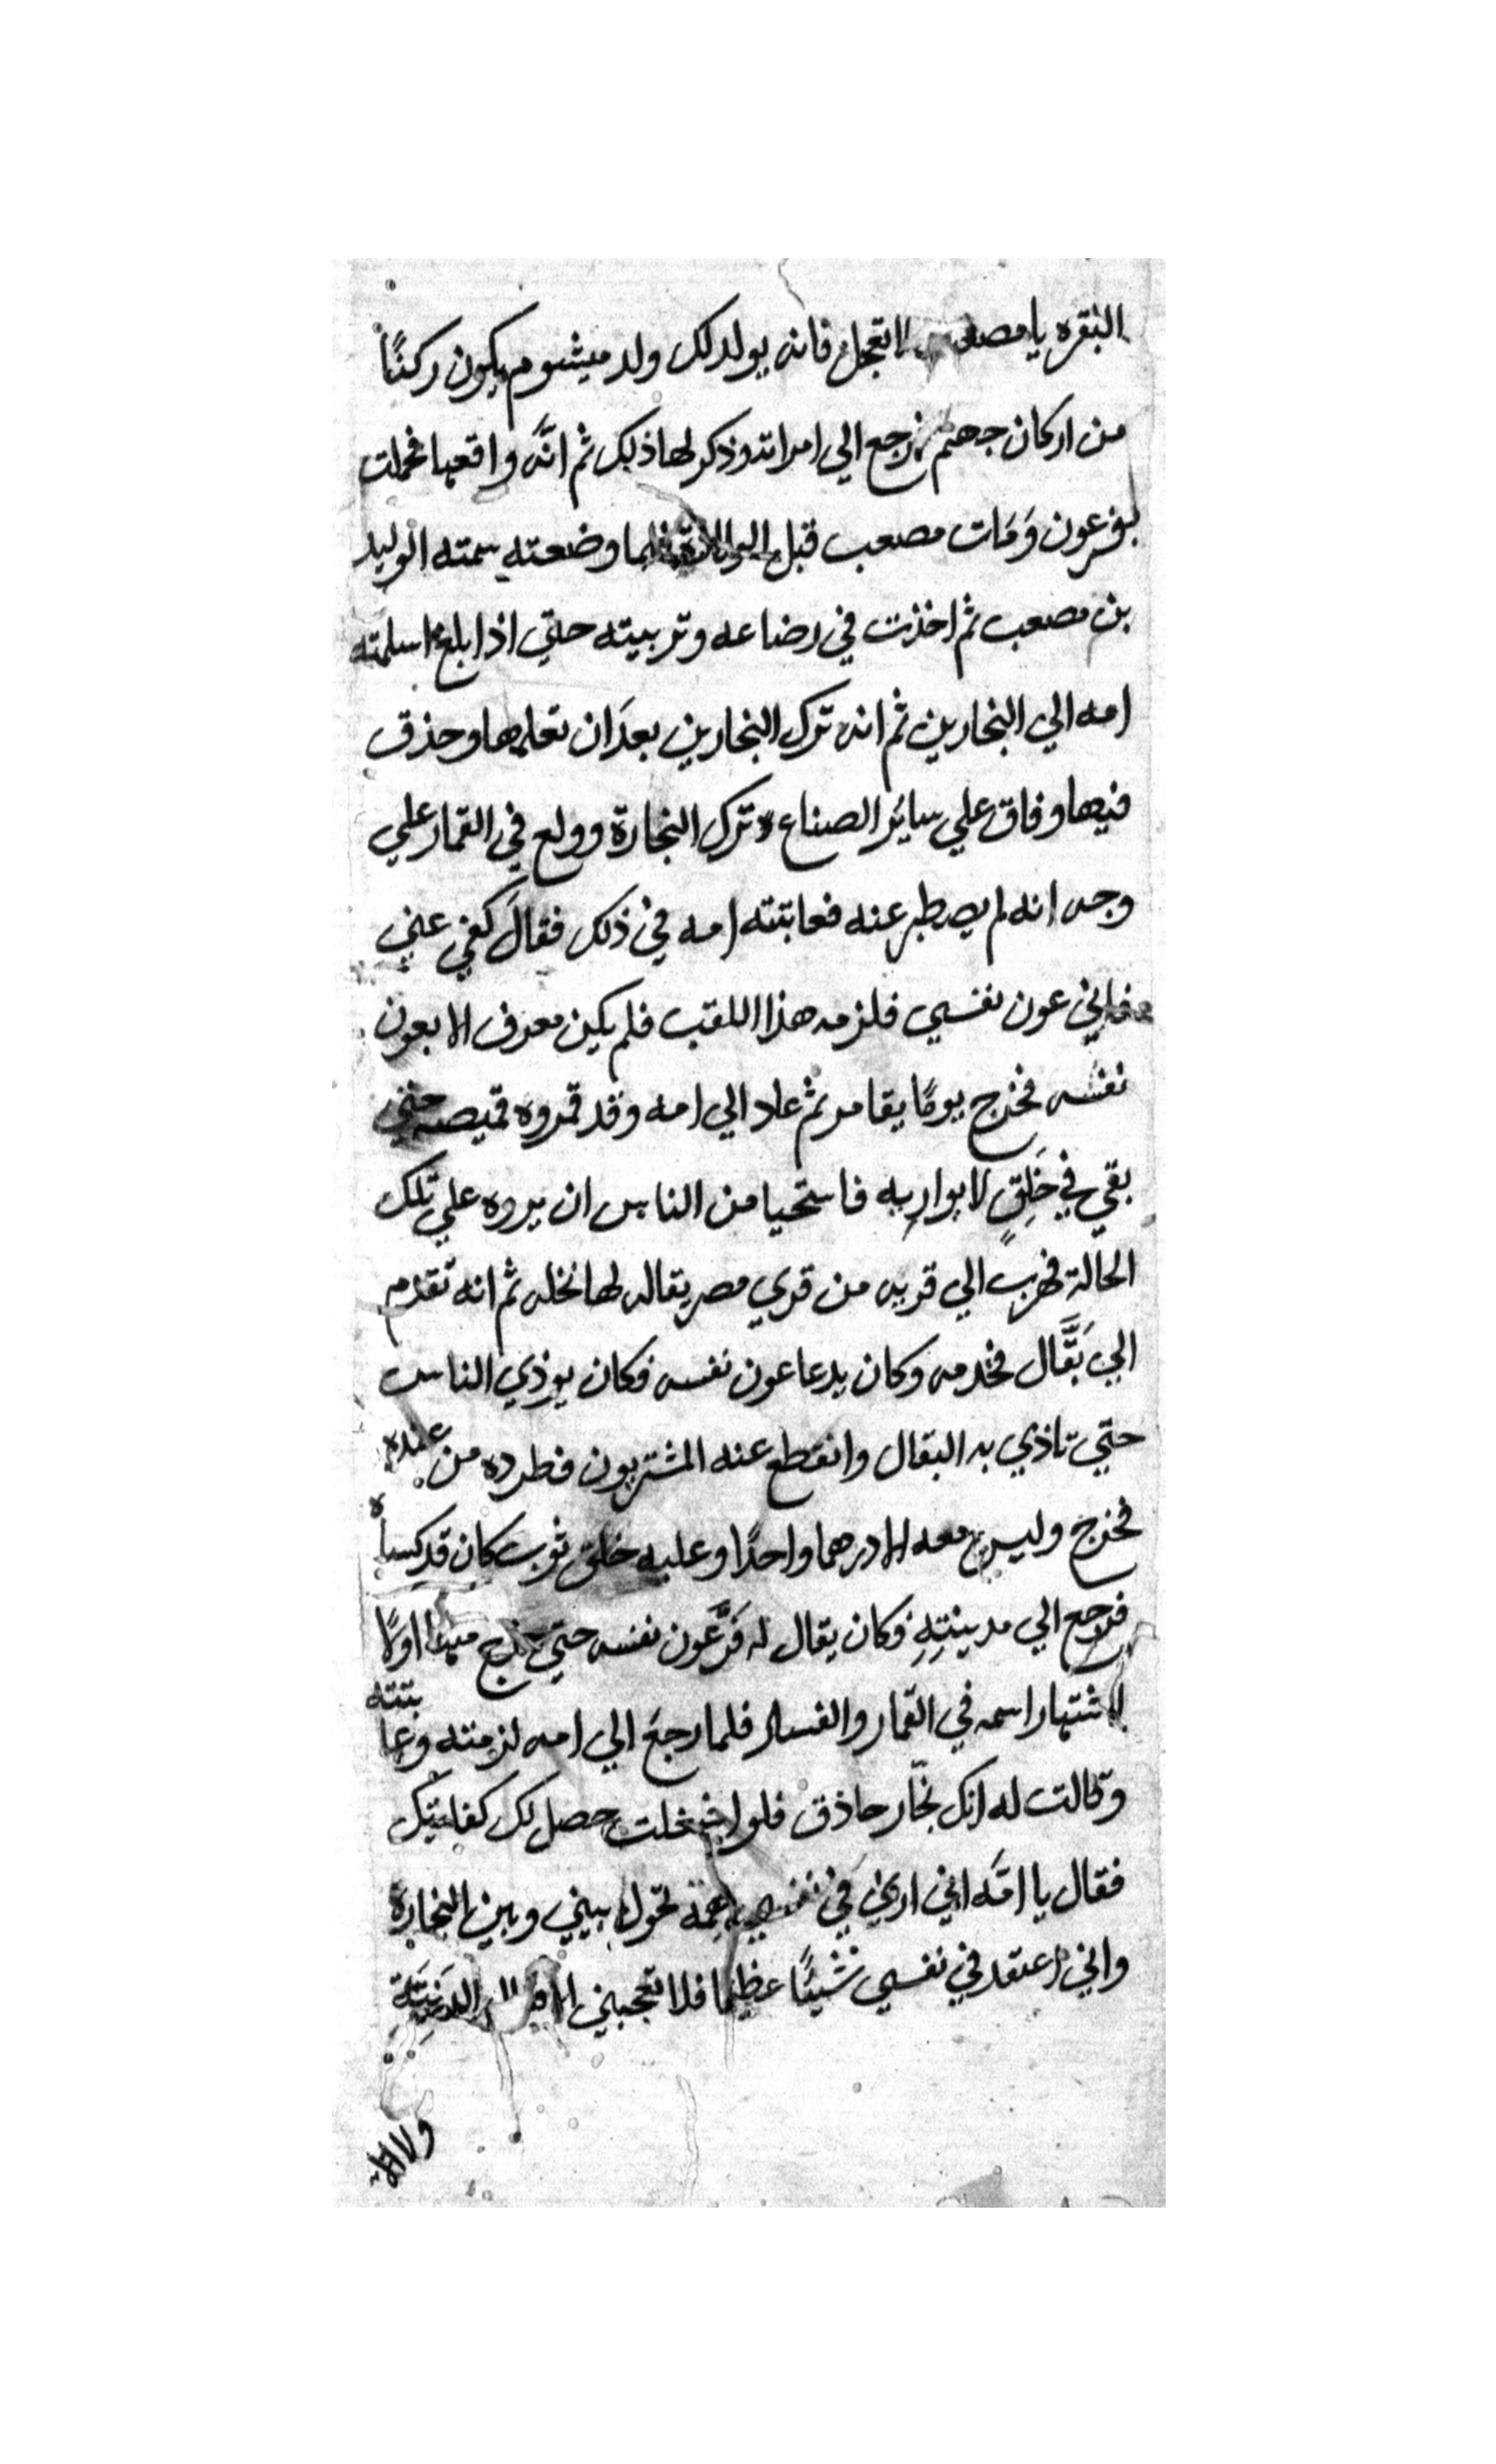 البقره يا مصعب لا تعجل فانه يولد لك ولد ميشوم يكون ركنًا
من اركان جهنم فرجع الي امراته وذكر لها ذلك ثم انَّه واقعها فحملت
بفرعون وَمَات مصعب قبل الولادة فلما وضعته سمته الوليد
بن مصعب ثم اخذت في رضاعه وتربيته حتي اذا بلغ اسلمته
امه الي النجارين ثم انه ترك النجارين بعدَان تعلمها وحذق
فيها وفاق علي سائر الصناع وترك النجارة وولع في القمار علي
وجه انه لم يصطبر عنه فعاتبته امه في ذلك فقالَ كفي عني
فاني عون نفسي فلزمه هذا اللقب فلم يكن معرف الا بعون
نفسه فخرج يومًا يقامر ثم عاد الي امه وقد قمروه قميصه حتي
بقي في خَلِقٍ لا يواريه فاستحيا من الناس ان يروه علي تلك
الحالة فهرب الي قريه من قري مصر يقال لها نخله ثم انه تقدم
الي بَقَّال فخدمه وكان يدعا عون نفسه فكان يوذي الناس
حتي تاذي به البقال وانقطع عنه المشتريون فطرده من عنده
فخرج وليس معه الا درهما واحدًا وعليه خلق ثوب كان قد كساه
فرجع الي مدينتِهِ فكان يقال له فَرَّعَون نفسه حتي خرج منها اولًا
لاشتهار اسمه في القمار والفساد فلما رجعَ الي امه لزمته وعاتبته
وقالت له انك نجّار حاذق فلو اشتغلت حصل لك كفايتك
فقال يا امَّه اني اري في نفسي همة تحول بيني وبين النجارة
واني اعتقد في نفسي شيئًا عظيما فلا تعجبني الا الدَنِيَّة
ولا